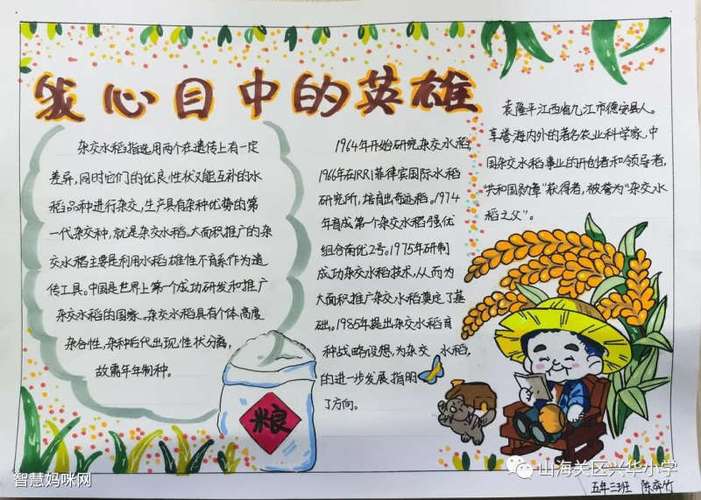 我心目中的英雄
杂交水稻指选用两个在遗传上有一定
差异,同时它们的优良性状又能互补的水
稻品种进行杂交,生产具有杂种优势的第
一代杂交种,就是杂交水稻。大面积推广的杂
交水稻主要是利用水稻雄性不育系作为遗
传工具。中国是世界上第一个成功研发和推广
杂交水稻的国家。杂交水稻具有个体高度
杂合性,杂种后代出现性状分离,
故需年年制种。
1964年开始研究杂交水稻,
1966年在IRRI菲律宾国际水稻
研究所,培育出奇迹稻。1974
年育成第一个杂交水稻强优
组合南优2号。1975年研制
成功杂交水稻技术,从而为
大面积推广杂交水稻奠定了基
础。1985年提出杂交水稻育
种战略设想,为杂交水稻,
的进一步发展指明
了方向。
袁隆平江西省九江市德安县人。
享誉海内外的著名农业科学家,中
国杂交水稻事业的开创者和领导者,
"共和国勋章"获得者,被誉为"杂交水
稻之父"。
粮
智慧妈咪网
山海关区兴华小学
五年三班 陈奕竹